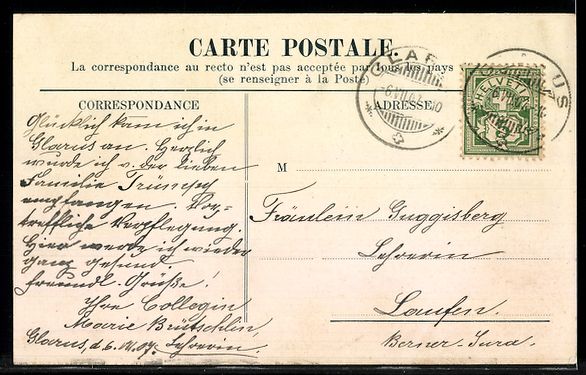 CARTE POSTALE.
La correspondance au recto n'est pas acceptée par tous les pays
(se renseigner à la Poste)
CORRESPONDANCE
ADRESSE
GLARUS
HELVETIA
Glücklich kam ich in
Glarus an. Herzlich
wurde ich v. der lieben
Familie Trümpy
empfangen. Vor-
treffliche Verpflegung.
Hier werde ich wieder
ganz gesund
freundl. Grüße!
Ihre Collegin
Marie Brütschlin,
Glarus, d. 6. VII. 07. Lehrerin.
M
Fräulein Guggisberg
Lehrerin
Laufen.
Berner-Jura.